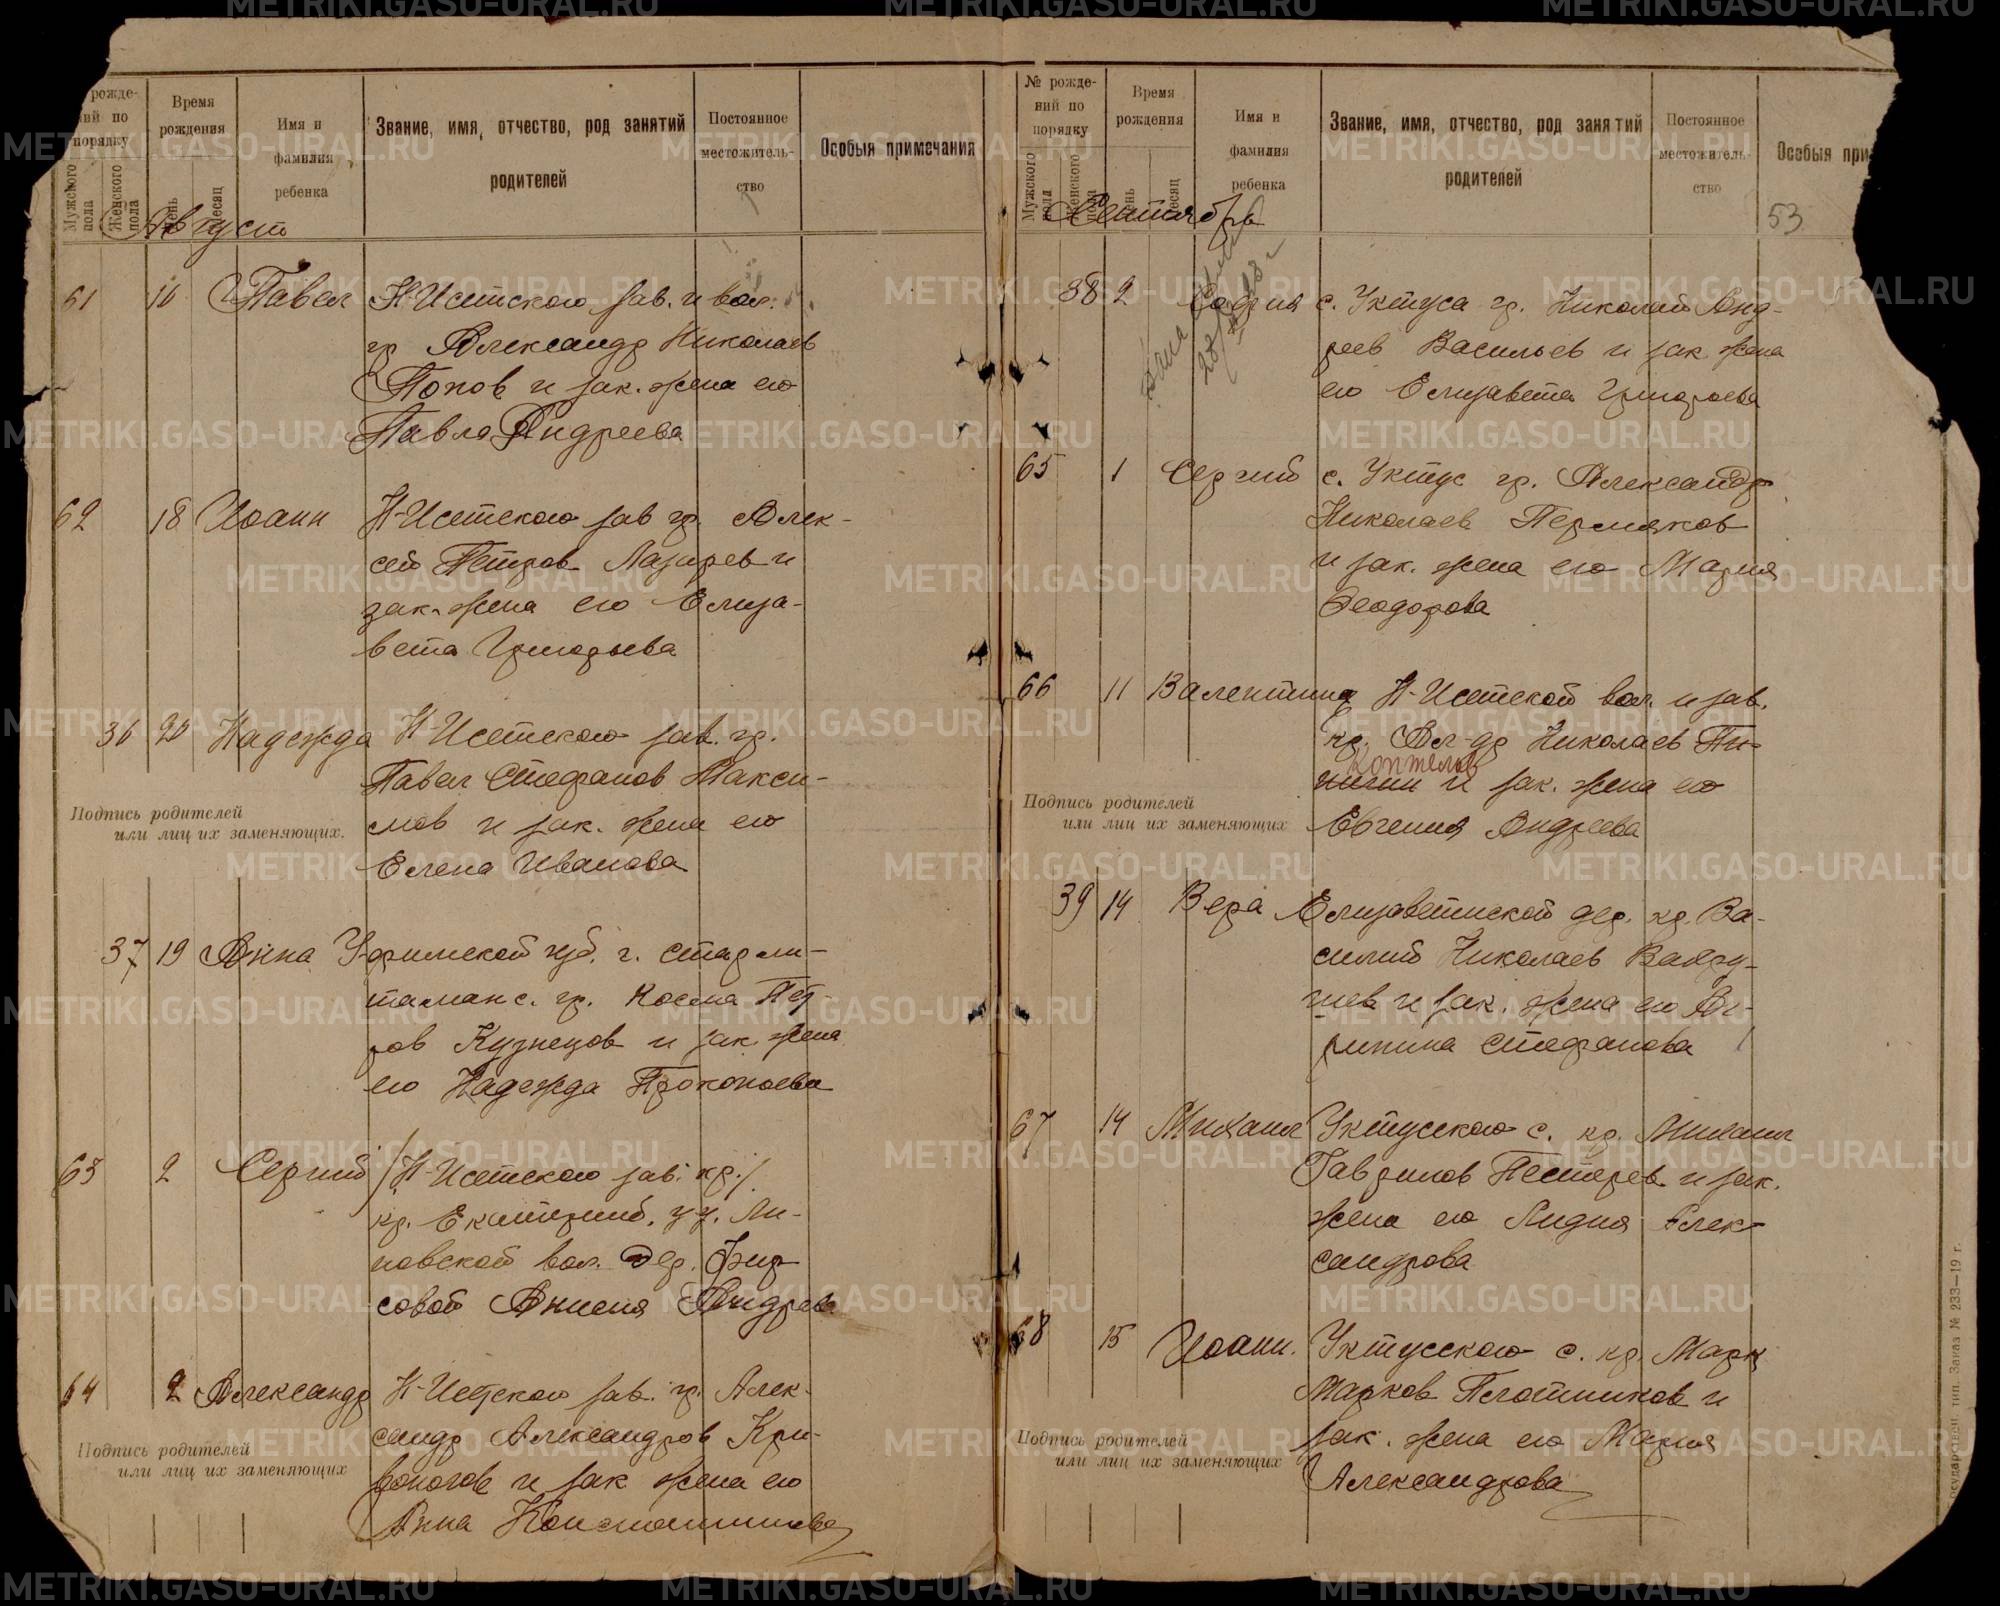 рожде-
ний по
порядку
Мужского пола
Женского пола
Время
рождения
День
Месяц
Имя и
фамилия
ребенка
Звание, имя, отчество, род занятий
родителей
Постоянное
местожитель-
ство
Особыя примечания
Август
61 10 Павел Н-Исетского зав. и вол.
гр. Александр Николаев
Попов и зак. жена его
Павла Андреева
62 18 Иоанн Н-Исетского зав гр. Алек-
сей Петров Лазарев и
зак. жена его Елиза-
вета Григорьева
36 20 Надежда Н-Исетского зав. гр.
Павел Стефанов Макси-
мов и зак. жена его
Елена Иванова
Подпись родителей
или лиц их заменяющих.
37 19 Анна Уфимской губ. г. Старли-
тамак с. гр. Косма Пет-
ров Кузнецов и зак. жена
его Надежда Прокопьева
63 2 Сергий /Н-Исетского зав. кр./
кр. Екатеринб. у у. Ли-
повской вол. дер. Фир-
совой Анисия Андреева
64 2 Александр Н-Исетского зав. гр. Алек-
сандр Александров Кри-
воногов и зак жена его
Анна Константинова
Подпись родителей
или лиц их заменяющих
№ рожде-
ний по
порядку
Мужского пола
Женского пола
Время
рождения
День
Месяц
Имя и
фамилия
ребенка
Звание, имя, отчество, род занятий
родителей
Постоянное
местожитель-
ство
Особыя при
Сентябрь
53
38 2 София с. Уктуса гр. Николай Анд-
реев Васильев и зак. жена
его Елизавета Григорьева
65 1 Сергий с. Уктус гр. Александр
Николаев Пермяков
и зак. жена его Мария
Феодорова
66 11 Валентина Н-Исетской вол. и зав.
кр. Ал-др Николаев Пи-
Коптелов
нигин и зак. жена его
Евгения Андреева
Подпись родителей
или лиц их заменяющих
39 14 Вера Елизаветинской дер. кр. Ва-
силий Николаев Вахру-
шев и зак. жена его Аг-
рипина Стефанова
67 14 Михаил Уктусского с. кр. Михаил
Гаврилов Пестерев и зак.
жена его Лидия Алек-
сандрова
68 15 Иоанн. Уктусского с. кр. Марк
Марков Плотников и
зак. жена его Мария
Александрова
Подпись родителей
или лиц их заменяющих
тип. Заказ № 233—19 г.
METRIKI.GASO-URAL.RU